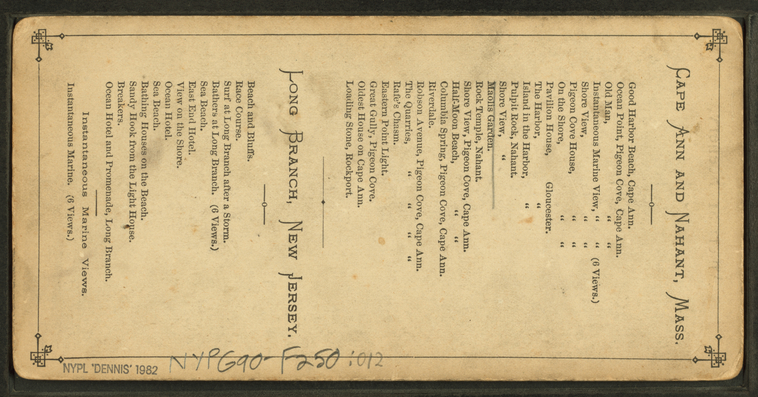 CAPE ANN AND NAHANT, MASS.
Good Harbor Beach, Cape Ann.
Ocean Point, Pigeon Cove, Cape Ann.
Old Man, " "
Instantaneous Marine View, " " (6 Views.)
Shore View, " "
Pigeon Cove House, " "
On the Shore, " "
Pavilion House, Gloucester.
The Harbor, "
Island in the Harbor, "
Pulpit Rock, Nahant.
Shore View, "
Maolis Garden.
Rock Temple, Nahant.
Shore View, Pigeon Cove, Cape Ann.
Half-Moon Beach, " "
Columbia Spring, Pigeon Cove, Cape Ann.
Riverdale.
Robson Avenue, Pigeon Cove, Cape Ann.
The Quarries, " " "
Rafe's Chasm.
Eastern Point Light.
Great Gully, Pigeon Cove.
Oldest House on Cape Ann.
Loading Stone, Rockport.
LONG BRANCH, NEW JERSEY.
Beach and Bluffs.
Race Course.
Surf at Long Branch after a Storm.
Bathers at Long Branch. (6 Views.)
Sea Beach.
East End Hotel.
View on the Shore.
Ocean Hotel.
Sea Beach.
Bathing Houses on the Beach.
Sandy Hook from the Light House.
Breakers.
Ocean Hotel and Promenade, Long Branch.
Instantaneous Marine Views.
Instantaneous Marine. (6 Views.)
NYPL "DENNIS" 1982
NYPG90-F250:012